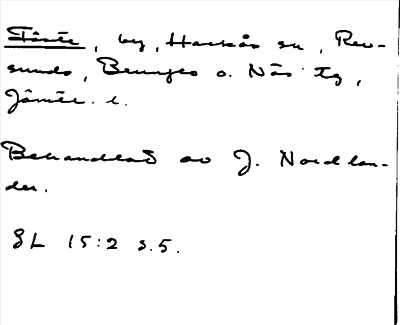 Fåste, by, Hackås sn, Rev-
sunds, Brunflo o. Näs tg,
Jämtl. l.
Behandlad av J. Nordlan-
der.
SL 15:2 s.5.